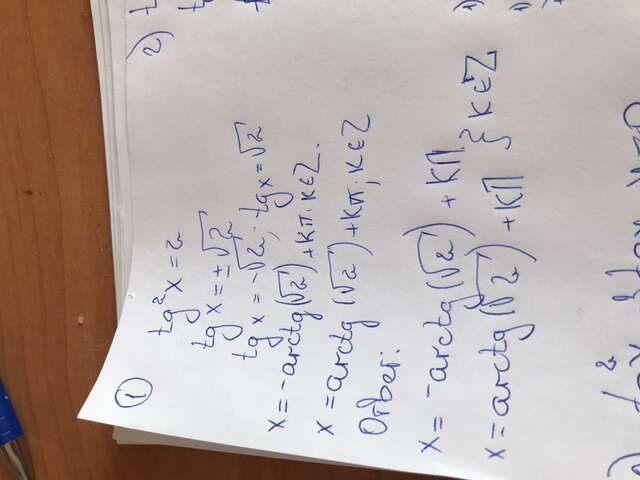 ①
tg²x=2
tgx=±√2
tgx=-√2; tgx=√2
x=-arctg(√2)+Kπ; K∈Z.
x=arctg(√2)+Kπ; K∈Z
Ответ:
x=-arctg(√2)+КП
x=arctg(√2)+КП } K∈Z
2)